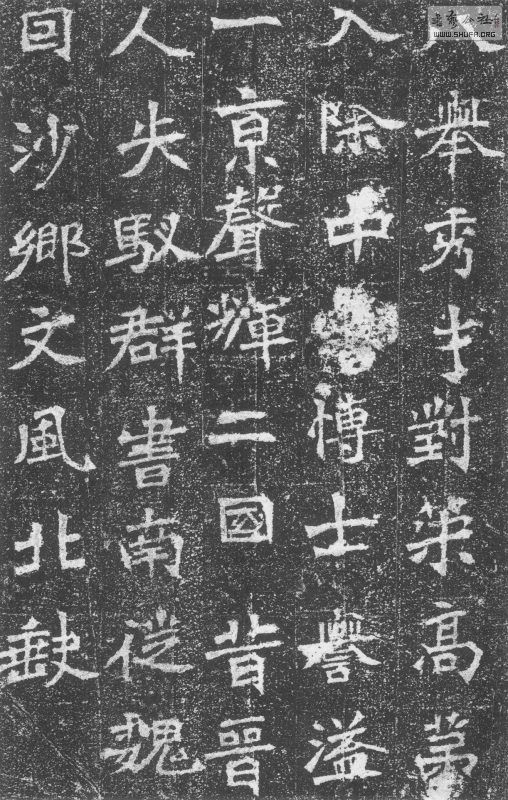 八舉秀才對策高第
入除中書博士譽溢
一京聲輝二國昔晉
人失馭群書南徙魏
因沙鄉文風北缺
書齋公社
WWW.SHUFA.ORG